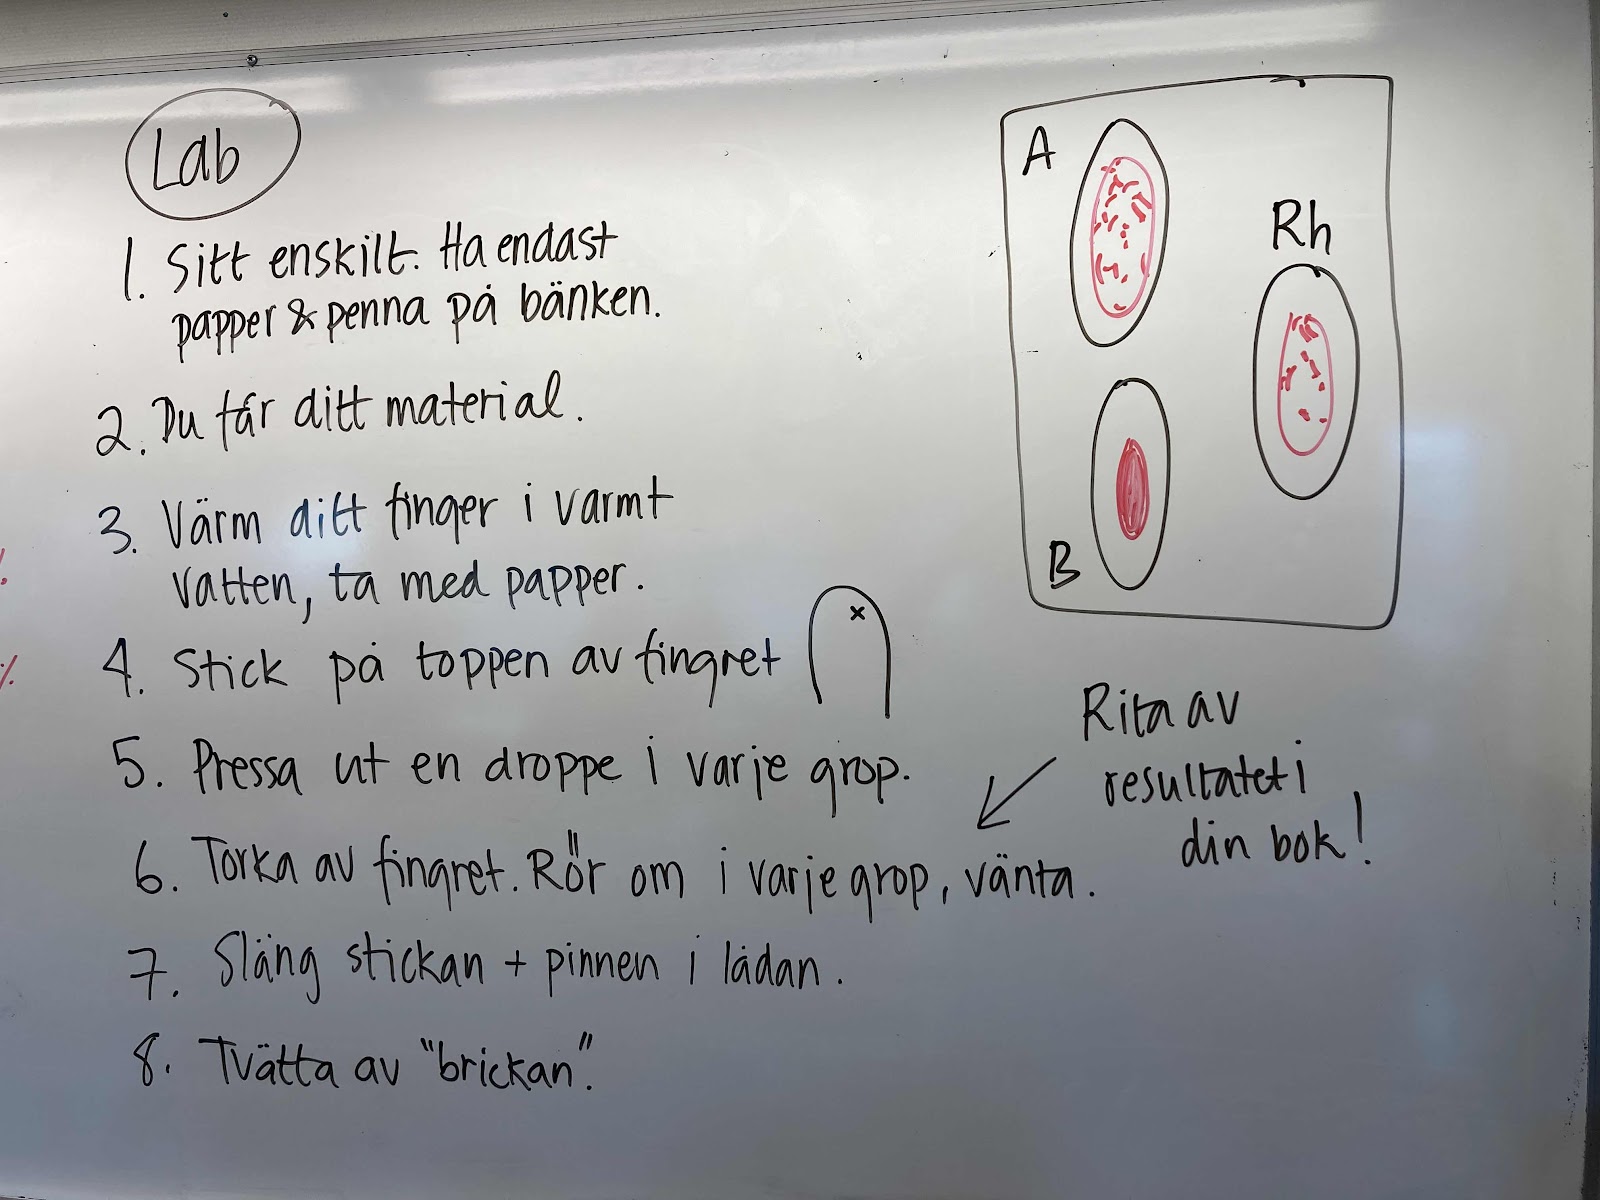 Lab
1. Sitt enskilt. Ha endast
papper & penna på bänken.
2. Du får ditt material.
3. Värm ditt finger i varmt
vatten, ta med papper.
4. Stick på toppen av fingret
x
5. Pressa ut en droppe i varje grop.
6. Torka av fingret. Rör om i varje grop, vänta.
7. Släng stickan + pinnen i lådan.
8. Tvätta av "brickan".
A
Rh
B
Rita av
resultatet i
din bok!